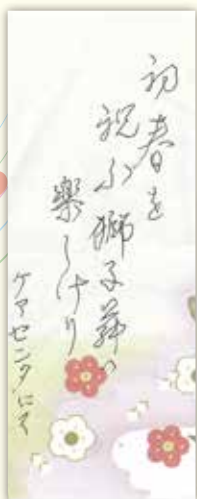 初春を
祝ふ獅子舞の
楽しけり
ケアセンタにて